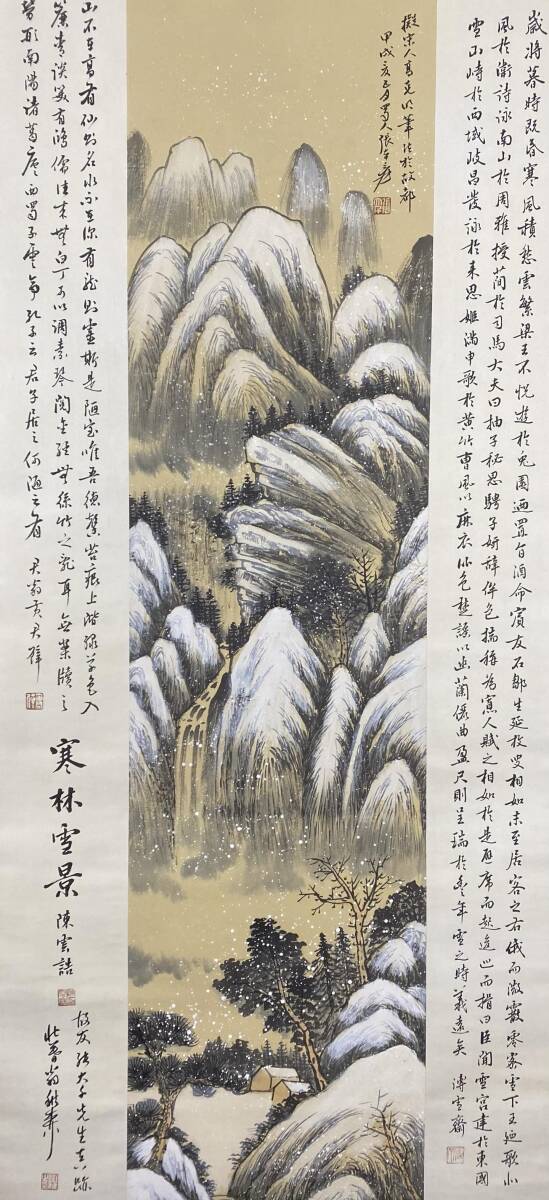 歲將暮時既昏寒風積愁雲繁梁王不悅遊於兔園迺置旨酒命賓友召鄒生延枚叟相如末至居客之右俄而微霰零密雪下王迺歌北
風於衛詩詠南山於周雅授簡於司馬大夫曰抽子秘思騁子妍辭侔色揣稱為寡人賦之相如於是避席而起逡巡而揖曰臣聞雪宮建於東國
雪山峙於西域岐昌發詠於來思姬滿申歌於黃竹曹風以麻衣比色楚謠以幽蘭儷曲盈尺則呈瑞於豐年雪之時義遠矣 溥雪齋
擬宋人高克明筆法於故都
甲戌亥正月蜀人張大千爰
山不在高有仙則名水不在深有龍則靈斯是陋室唯吾德馨苔痕上階綠草色入
簾青談笑有鴻儒往來無白丁可以調素琴閱金經無絲竹之亂耳無案牘之
勞形南陽諸葛廬西蜀子雲亭孔子云君子居之何陋之有 君翁黃君璧
寒林雪景 陳雲誥
故友張大千先生真跡